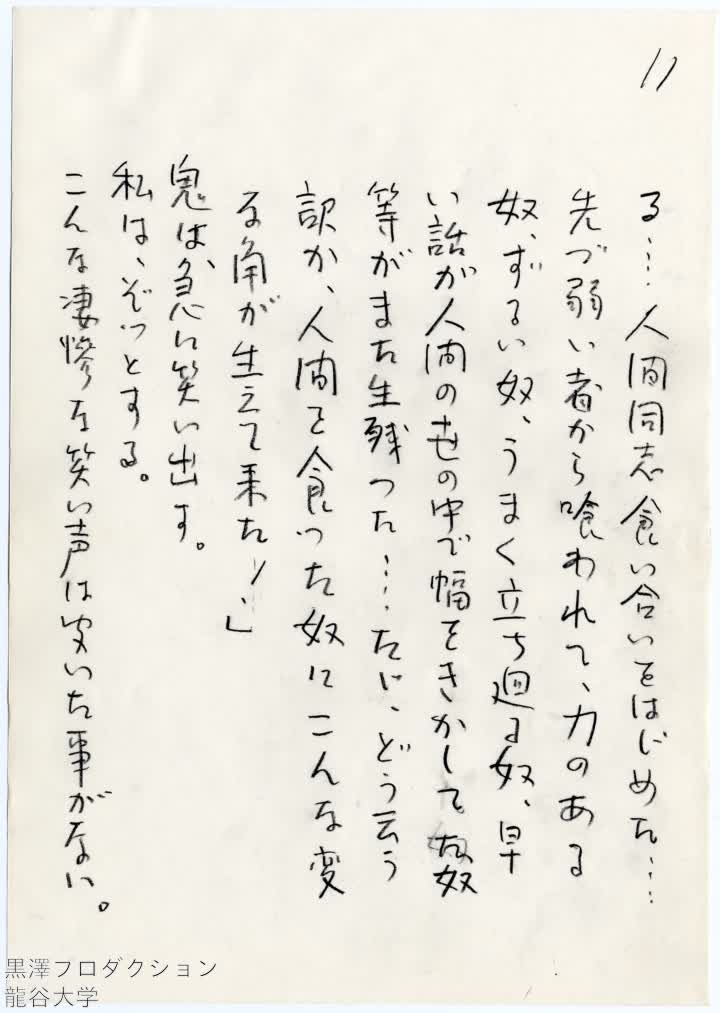 11
る……人間同志食い合いをはじめた……
先づ弱い者から喰われて、力のある
奴、ずるい奴、うまく立ち廻る奴、早
い話が人間の世の中で幅をきかしてた奴
等がまた生残つた……たゞ、どう云う
訳か、人間を食つた奴にこんな変
な角が生えて来た!」
鬼は、急に笑い出す。
私は、ぞつとする。
こんな凄惨な笑い声は聞いた事がない。
黒澤プロダクション
龍谷大学